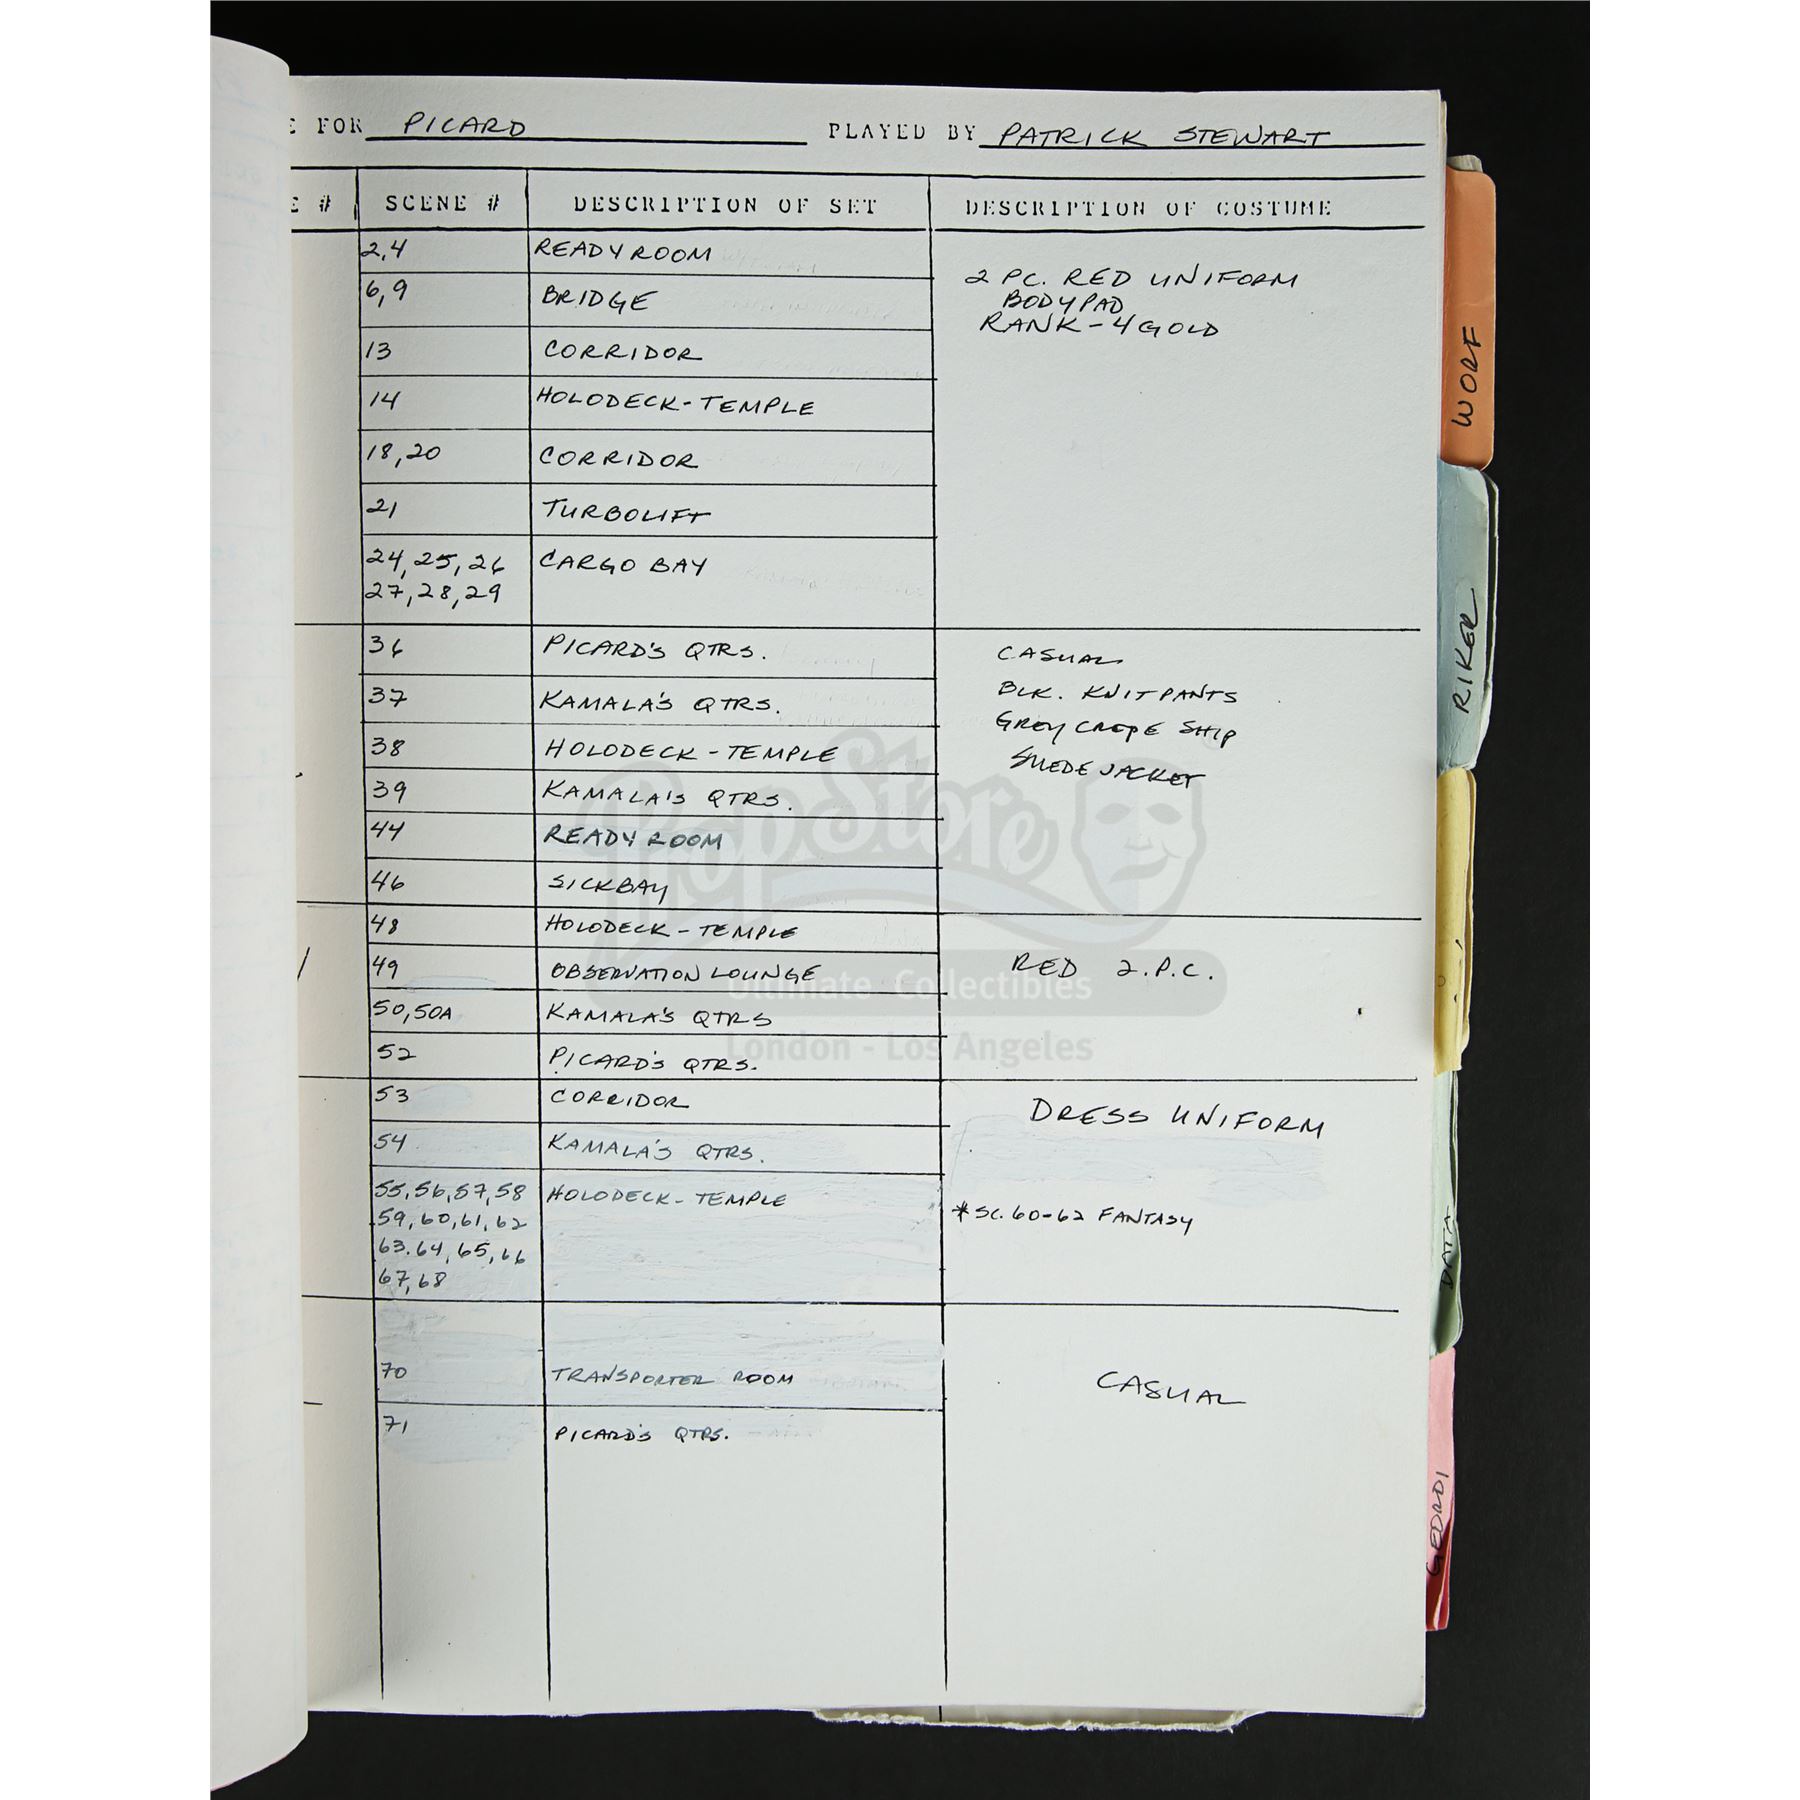 E FOR PICARD PLAYED BY PATRICK STEWART
E # SCENE # DESCRIPTION OF SET DESCRIPTION OF COSTUME
2,4 READY ROOM
2 PC. RED UNIFORM
6,9 BRIDGE
BODYPAD
RANK - 4 GOLD
13 CORRIDOR
14 HOLODECK - TEMPLE
18,20 CORRIDOR
21 TURBOLIFT
24,25,26 CARGO BAY
27,28,29
36 PICARD'S QTRS. CASUAL
37 KAMALA'S QTRS. BLK. KNIT PANTS
GREY CREPE SHIP
38 HOLODECK - TEMPLE
SUEDE JACKET
39 KAMALA'S QTRS.
44 READY ROOM
46 SICKBAY
48 HOLODECK - TEMPLE
49 OBSERVATION LOUNGE RED 2.P.C.
50,50A KAMALA'S QTRS
52 PICARD'S QTRS.
53 CORRIDOR DRESS UNIFORM
54 KAMALA'S QTRS.
55,56,57,58 HOLODECK - TEMPLE
59,60,61,62 * SC. 60-62 FANTASY
63.64,65,66
67,68
70 TRANSPORTER ROOM CASUAL
71 PICARD'S QTRS.
WORF
RIKER
DATA
GEORDI
PropStore
Ultimate Collectibles
London - Los Angeles